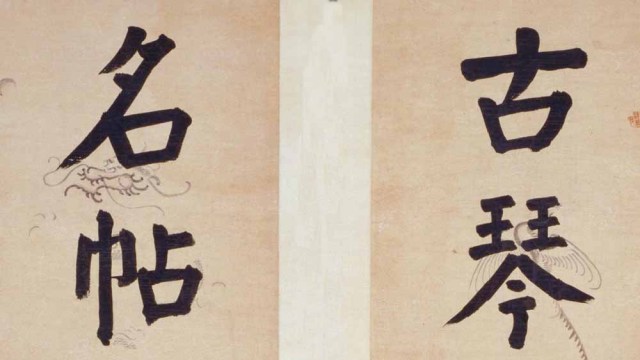 古琴
名帖